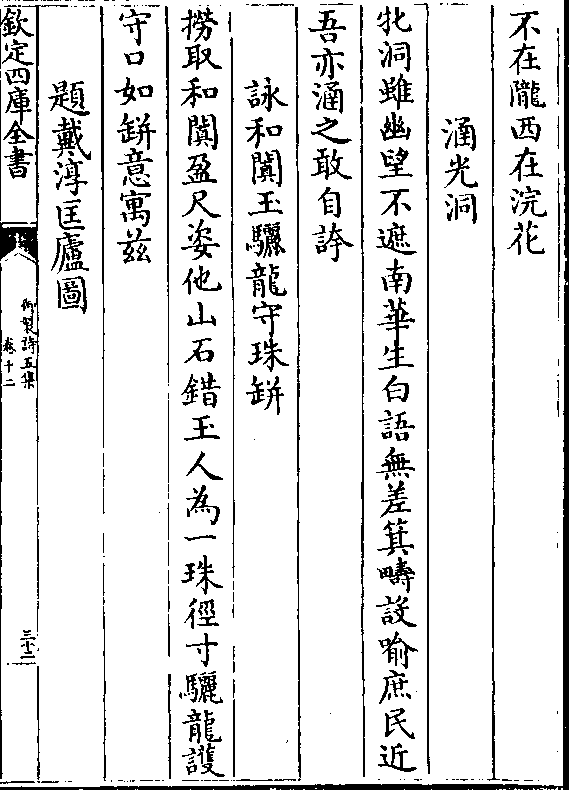 不在隴西在浣花
涵光洞
牝洞雖幽望不遮南華生白語無差箕疇設喻庶民近
吾亦涵之敢自誇
詠和闐玉驪龍守珠缾
撈取和闐盈尺姿他山石錯玉人為一珠徑寸驪龍護
守口如缾意寓茲
題戴淳匡廬圖
欽定四庫全書
御製詩五集
卷十二
三十二